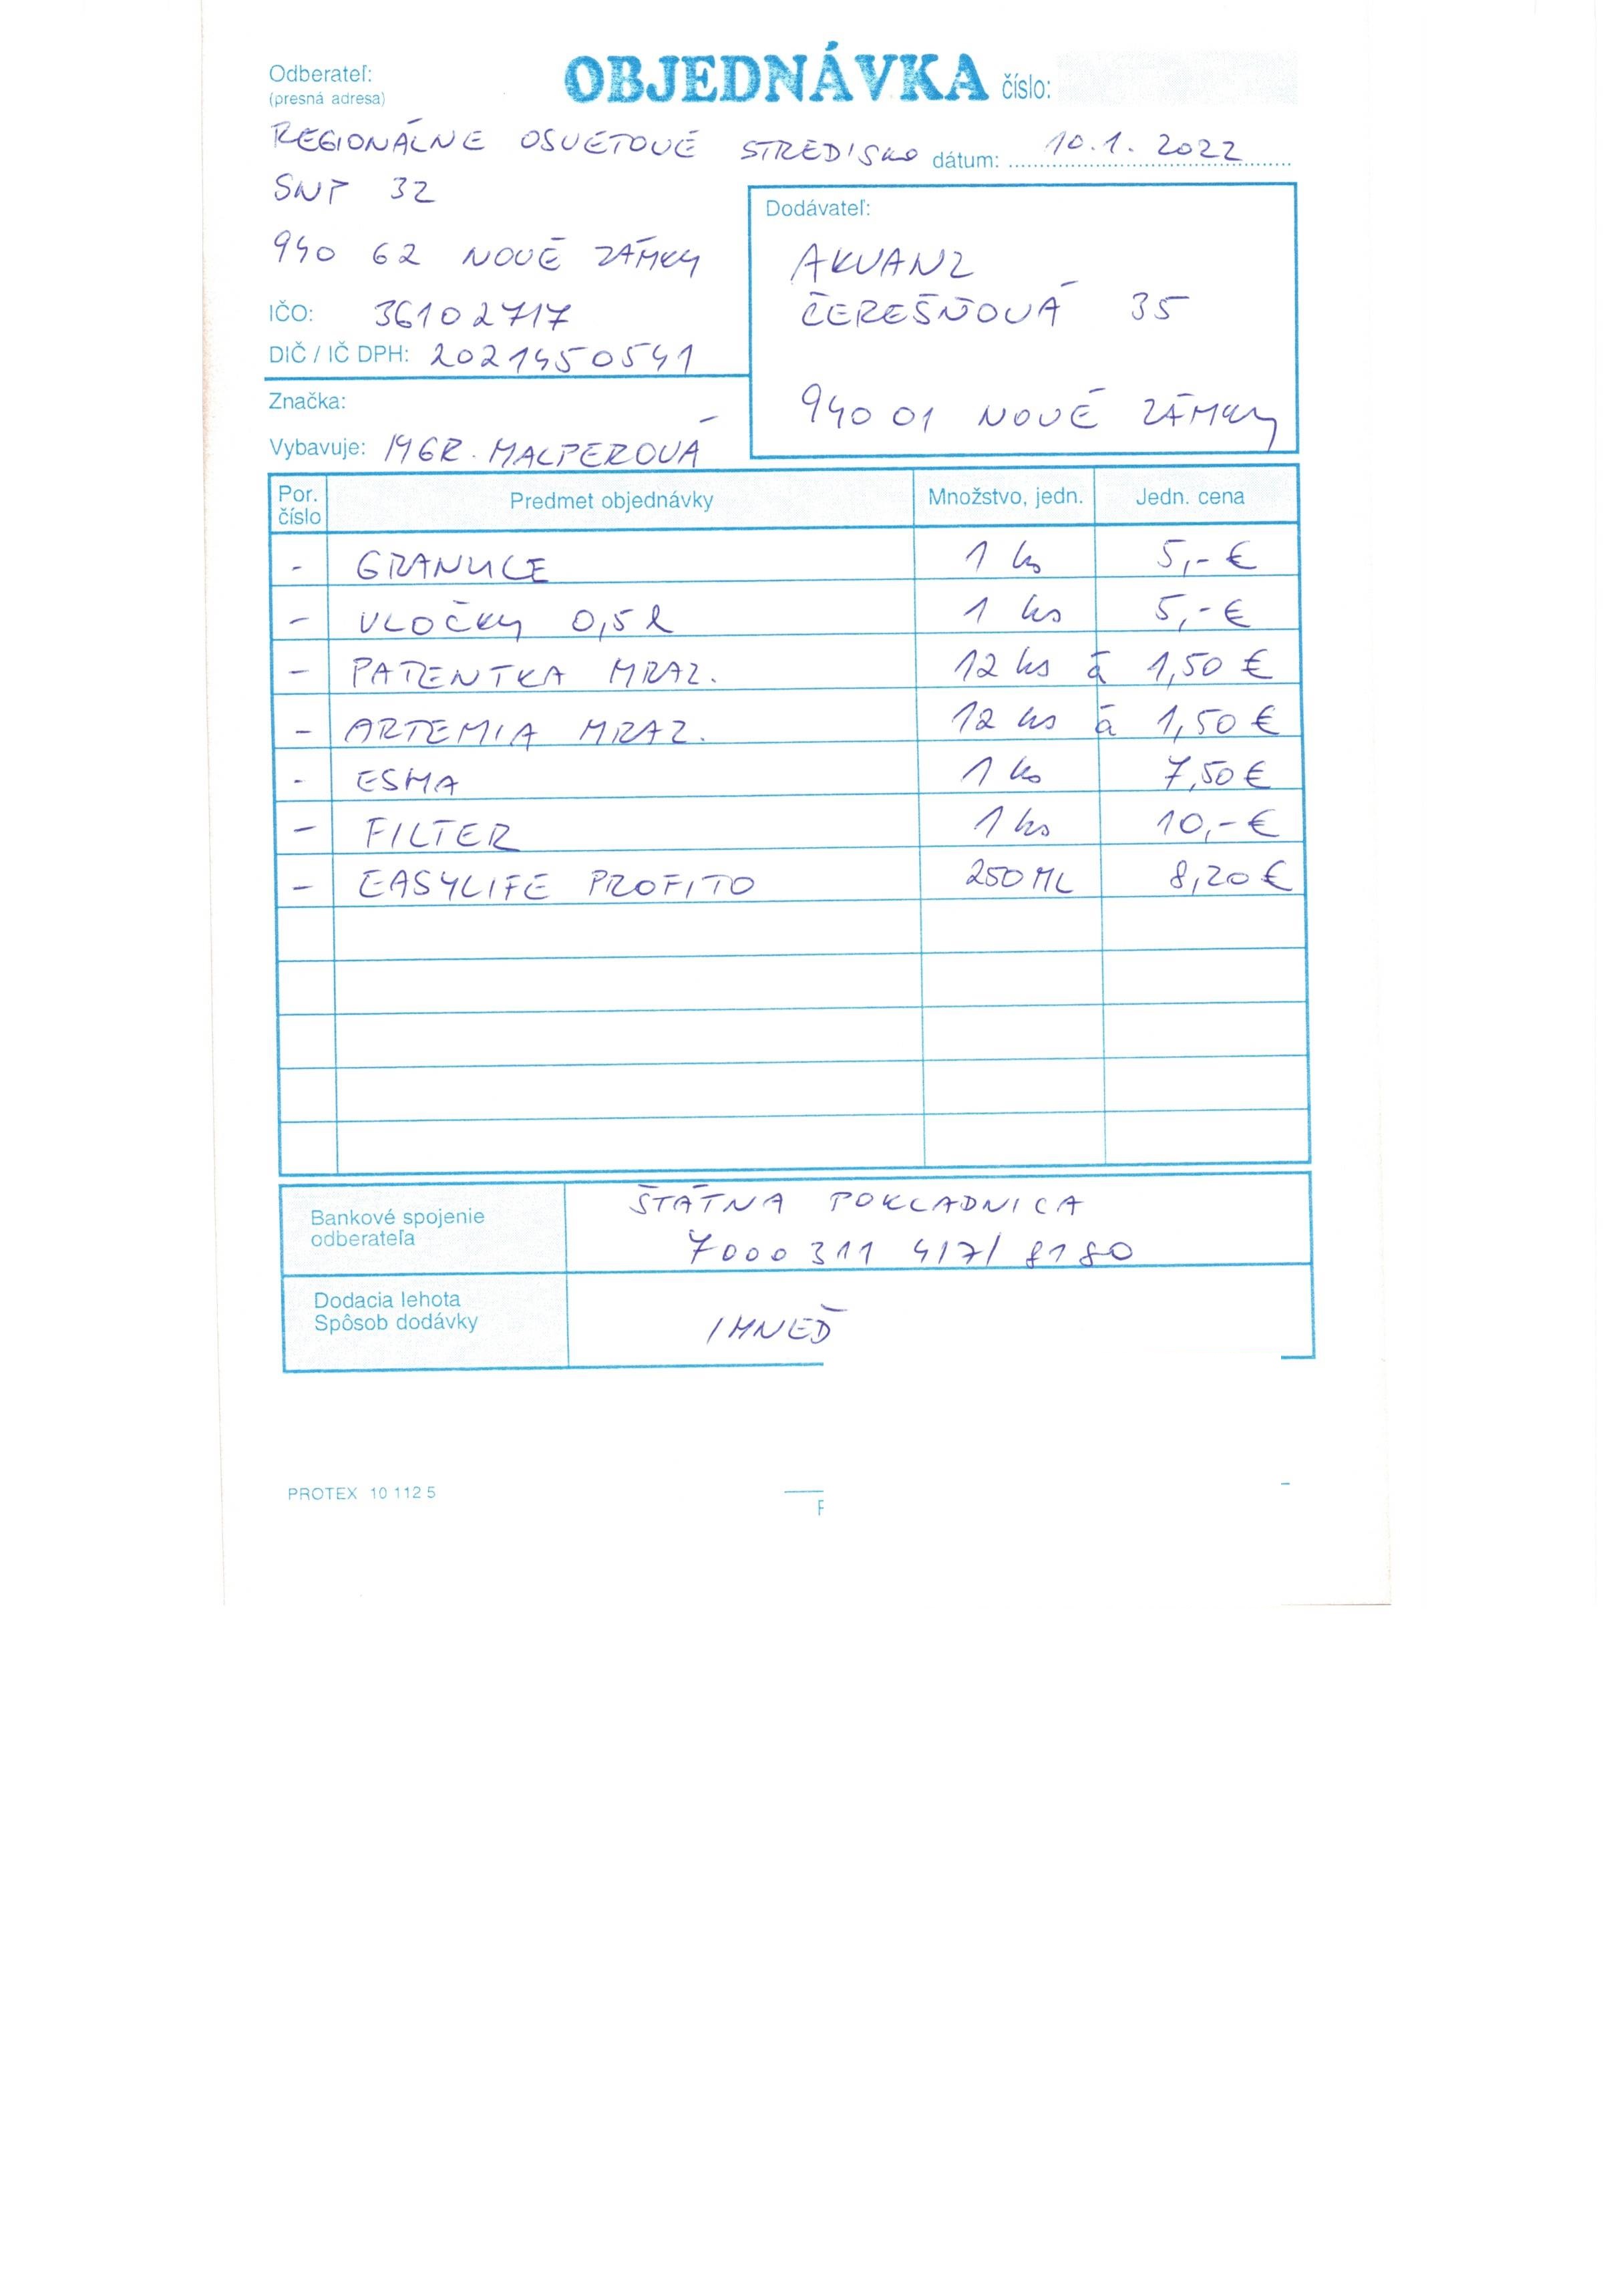 Odberateľ:
(presná adresa)
OBJEDNÁVKA číslo:
REGIONÁLNE OSVETOVÉ STREDISKO dátum: 10.1. 2022
SNP 32
940 62 NOVÉ ZÁMKY
IČO: 36102717
DIČ / IČ DPH: 2021450541
Značka:
Vybavuje: MGR. MALPEROVÁ
Dodávateľ:
AKVANZ
ČEREŠŇOVÁ 35
940 01 NOVÉ ZÁMKY
Por. číslo Predmet objednávky Množstvo, jedn. Jedn. cena
- GRANULE 1 ks 5,- €
- VLOČKY 0,5 l 1 ks 5,- €
- PATENTKA MRAZ. 12 ks á 1,50 €
- ARTEMIA MRAZ. 12 ks á 1,50 €
- ESHA 1 ks 7,50 €
- FILTER 1 ks 10,- €
- EASYLIFE PROFITO 250 ML 8,20 €
Bankové spojenie
odberateľa
ŠTÁTNA POKLADNICA
7000 311 417/ 8180
Dodacia lehota
Spôsob dodávky
IHNEĎ
PROTEX 10 112 5